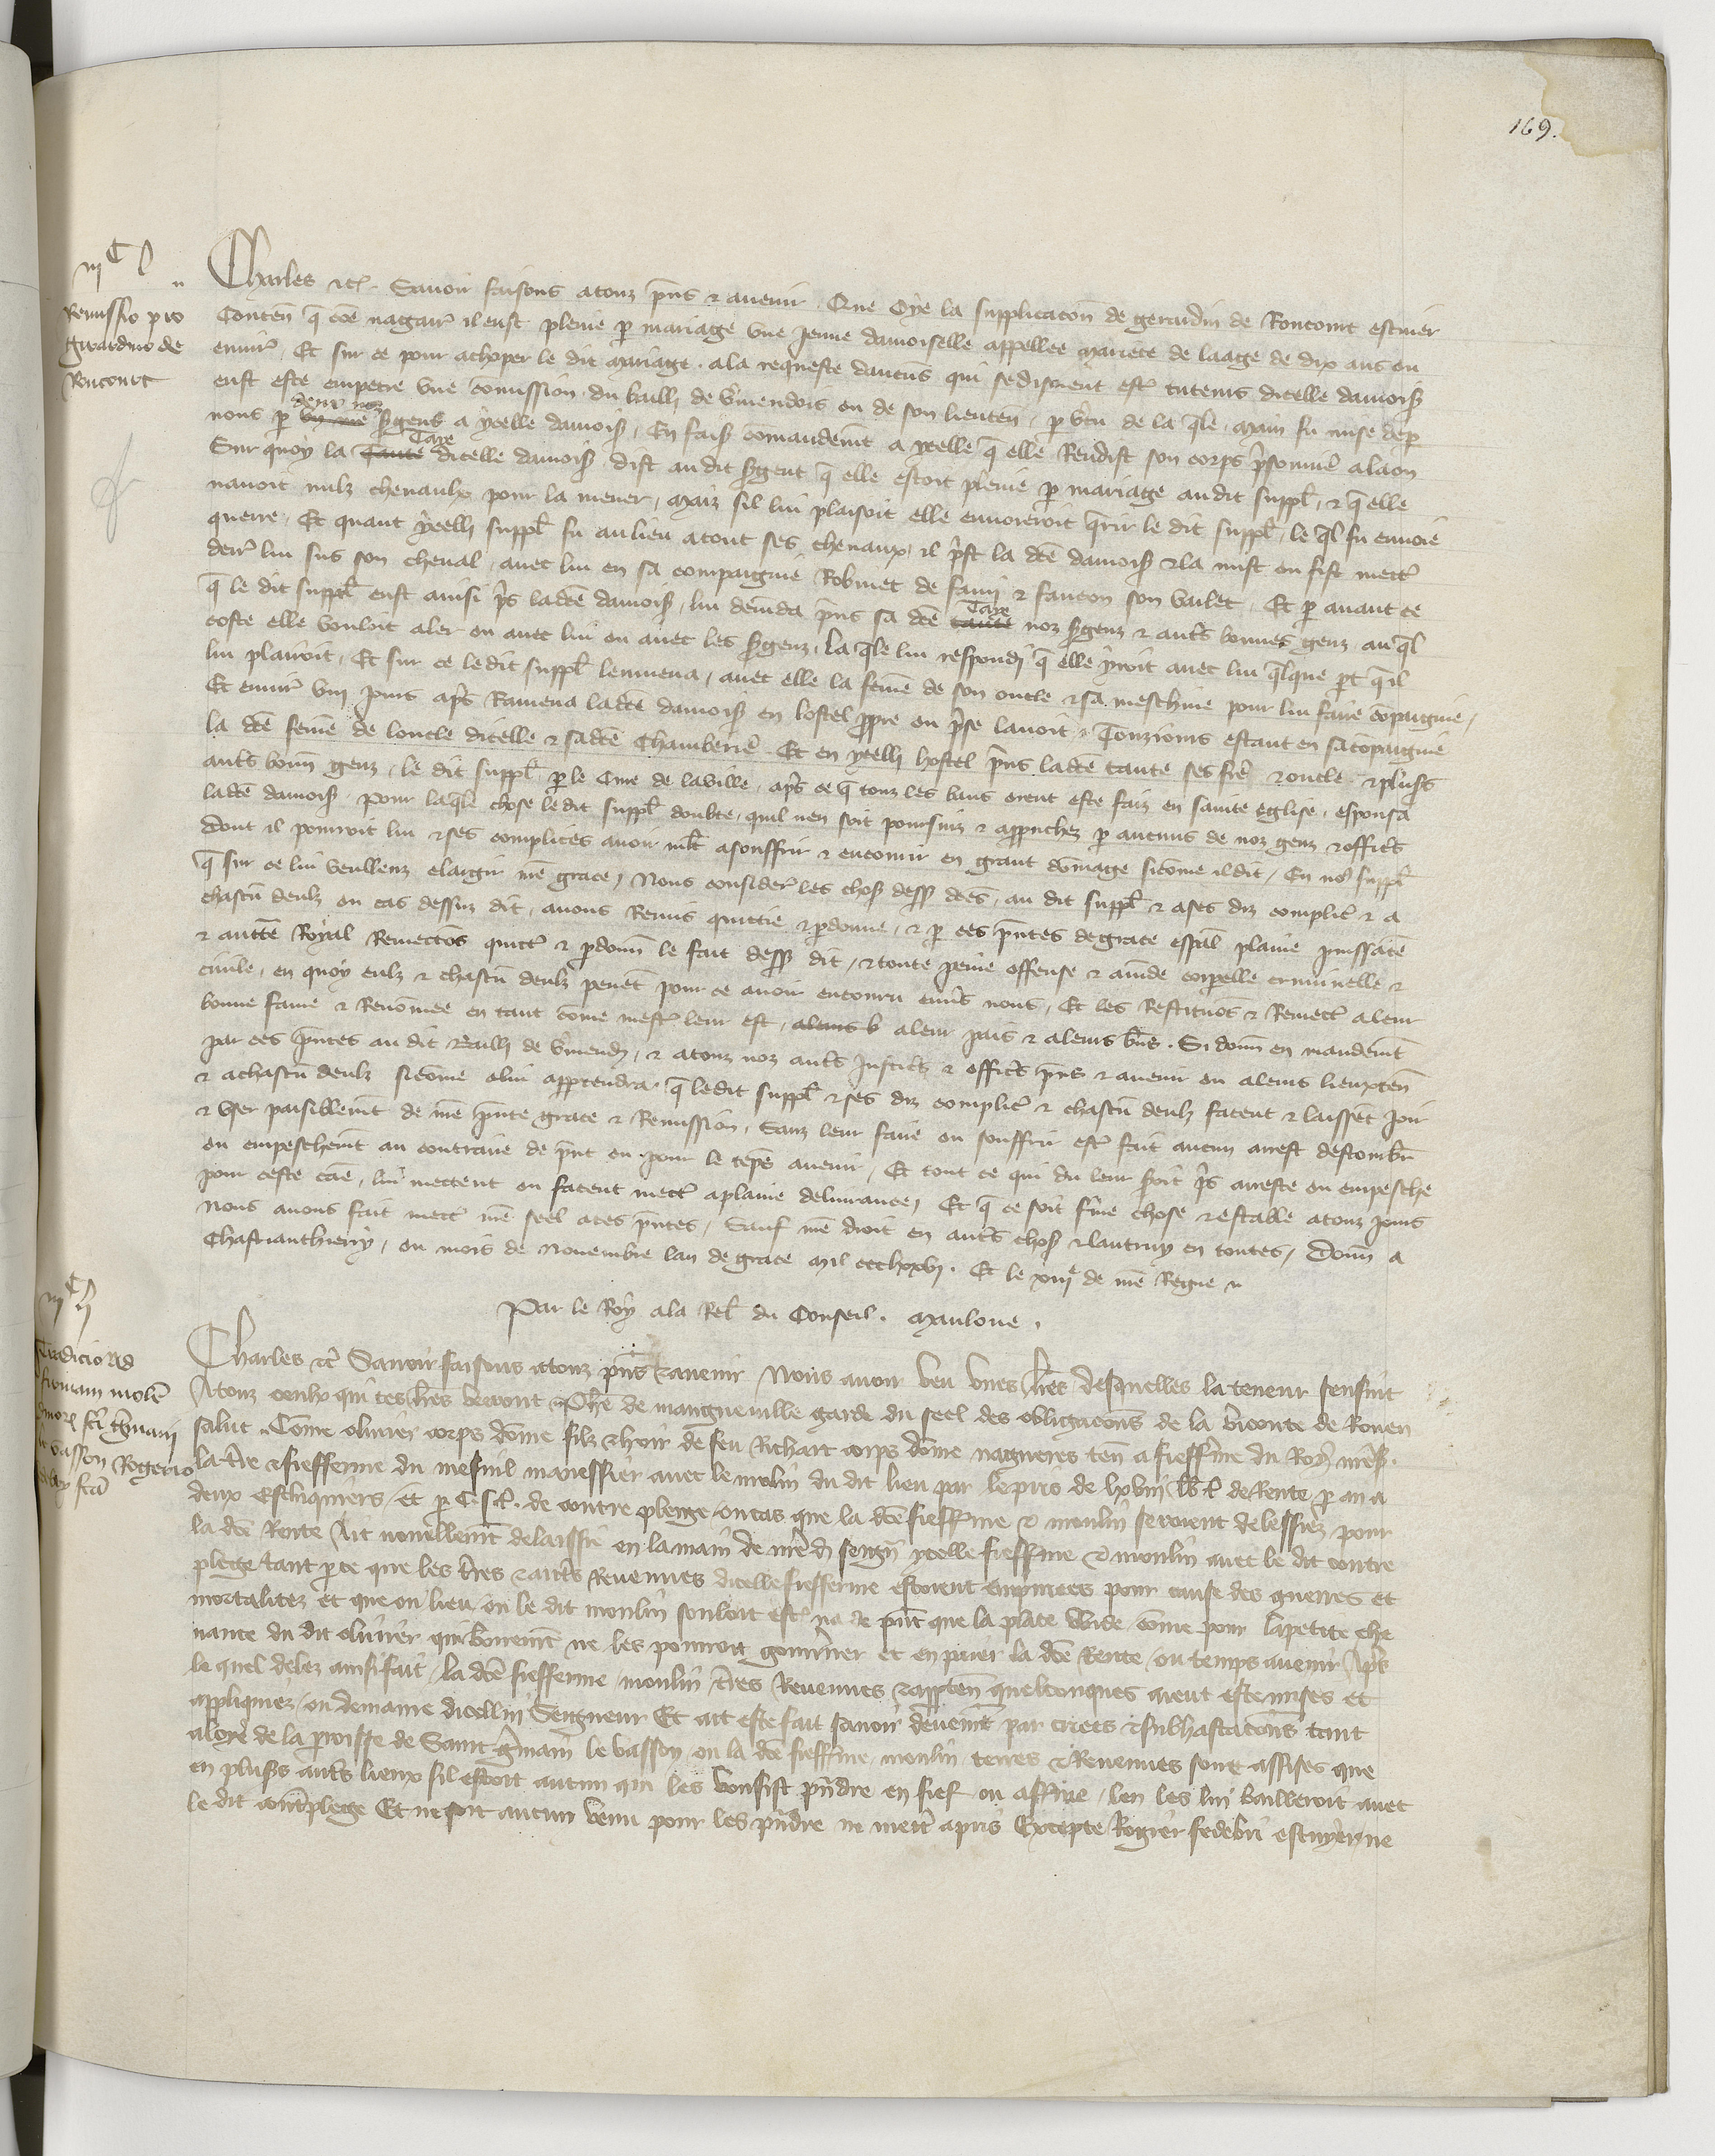 169.
iijC l
Remissio pro
Girardino de
Roncourt
Charles etc. Savoir faisons a touz pns et avenir. Que Oye la supplicacon de gerardin de Roncourt escuier
Conten q coe nagair il eust plevie p mariage une jeune damoiselle appellee Mariete de laage de dix ans ou
envir, Et sur ce pour achoper le dit mariage. a la requeste daucuns qui se disoient estr tuteurs dicelle damois
eust este empetre une comission du bailli de Vmendois ou de son lieuten, p vtu de la qle, main fu mise de p
nous p deux nos sgens a ycelle damois, En fais comandemt a ycelle q elle Rendist son corps prisonnier a laon
Sur quoy la Taye dicelle damois dist au dit sgent q elle estoit plevie p mariage au dit suppl, et q elle
navoit nulz chevaulx pour la mener, Maiz sil lui plaisoit elle envoieroit qrir le dit suppl, le ql fu envoie
querre, Et quant ycelli suppl fu au lieu a tout ses chevaux, il prist la dce damois et la mist ou fist mettr
derr lui sus son cheval, avec lui en sa compaignie Robinet de et faucon son vailet, Et p avant ce
q le dit suppl eust ainsi pris ladce damois, lui demda pns sa dce Taye noz sgenz et autrs bonnes genz au ql
coste elle vouloit aler ou avec lui ou avec les sgenz, La qle lui respondi q elle yroit avec lui qlque pt qil
lui plairoit, Et sur ce ledit suppl lenmena, avec elle la feme de son oncle et sa meschine pour lui faire compaignie,
Et envir viij jours aps Ramena ladce damois en lostel ppre ou prise lavoit, Touzjours estant en sa copaignie
la dce feme de loncle dicelle et sadce Chamberie. Et en ycelli hostel pns ladce tante ses fres et oncle et plus
autrs bonn genz, le dit suppl p le Cure de la ville, aps ce q touz les bans orent este faiz en sainte eglise, espousa
ladce damois. Pour laqle chose ledit suppl doubte, quil nen soit poursuiz et approuchez p aucuns de noz genz et officrs
dont il pourroit lui et ses complices avoir mlt a souffrir et encourir en grant domage sicome il dit, En nos suppl
q sur ce lui veullenz elargir nre grace, Nous considerr les chos dess dces, au dit suppl et a ses diz complic et a
chascun deulz ou cas dessuz dit, avons Remis quittie et pdonne, et p ces pntes de grace espal plaine puissace
et auctte Royal Remectos quictr et pdonn le fait dess dit, et toute peine offense et amde corpelle criminelle et
civile, en quoy eulz et chascun deulz pevent pour ce avoir encouru envs nous, Et les Restituos et Remectr a leur
bonne fame et Renommee en tant come mestr leur est, a leur pais et a leurs bns. Si donn en mandemt
par ces pntes au dit Bailli de Vmend, et a touz noz autrs justicrs et officrs pns et avenir ou a leurs lieuxten
et a chascun deulz sicome a lui apptendra q ledit suppl et ses diz complic et chascun deulz facent et laissent joir
et user paisiblemt de nre pnte grace et Remission, Sanz leur faire ou souffrir estr fait aucun arrest destourb
ou empeschemt au contraire de pnt ou pour le teps avenir, Et tout ce qui du leur soit pris arreste ou empesche
pour ceste cae, lui mettent ou facent mettr a plaine delivrance, Et q ce soit fme chose et estable a touz jours
Nous avons fait mettr nre seel a ces pntes, Sauf nre droit en autrs chos et lautruy en toutes, Donn a
Chastiauthierry, ou mois de Novembre lan de grace Mil ccclxxvj. Et le xiije de nre Regne
Par le Roy a la Rel du Conseil. Mauloue.
iijC lj
Tradicio ad
firmam molen
Charles etc Savoir faisons a touz pns et avenir Nous avoir veu unes lres desquelles la teneur sensuit
A touz ceulx qui ces lres verront Phe de mangneville garde du seel des obligacons de la viconte de Rouen
salut. Come olivier corps dome filz et hoir de feu Richart corps dome nagueres ten a fieffme du Roy nres.
la tre et fiefferme du mesnil manessier avec le molin du dit lieu par le pris de lxviij lb t de Rente p an a
deux eschiquiers, et p C s t. de contre plenge, ou cas que la dce fieffme et moulin seroient delessiez pour
la dce Rente Ait nouvellemt delaissie en la main de nre d sengn ycelle fieffme et moulin avec le dit contre
plege tant p ce que les tres et autrs Revenues dicelle fiefferme estoient empirees pour cause des guerres et
mortalitez et que ou lieu ou le dit moulin souloit estr na de pnt que la place wide, come pour la petite che
vance du dit olivier qui bonnemt ne les pourroit gouvner et en paier la dce Rente ou temps avenir Aps
le quel delez ainsi fait, la dce fiefferme, moulin, tres Revenues et appten quelconques aient este mises et
appliquiez ou demaine dicellui Seigneur Et ait este fait savoir deuemt par criees et subhastacons tant
a loye de la proisse de Saint Gmain le vasson ou la dce fieffme, moulin terres et Revenues sont assises que
en plus autrs lieux sil estoit aucun qui les vousist pndre en fief ou a ffme, len les lui bailleroit avec
le dit contplege Et ne soit aucun venu pour les pndre ne mettr a pris Excepte Rogier escuyer ne